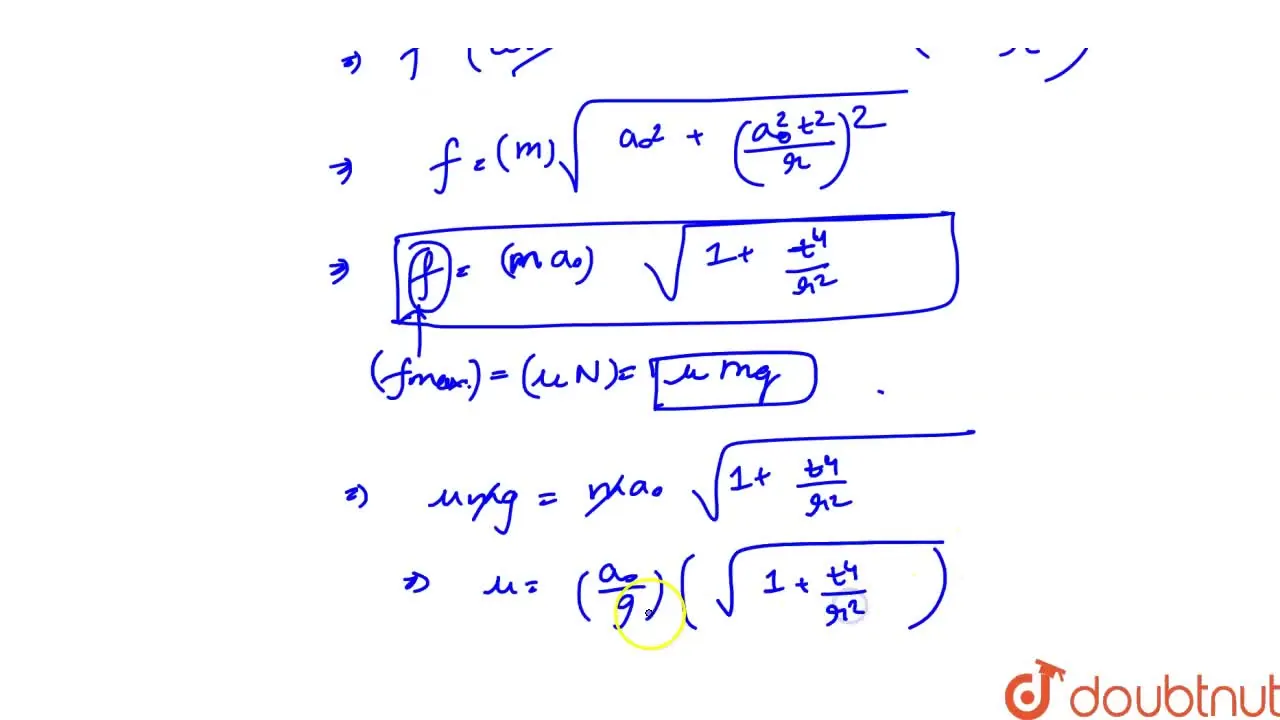 ⇒ f = (m) √(a₀² + (a₀²t²/r)²)
⇒ f = (m a₀) √(1 + t⁴/r²)
(fmax.) = (μN) = μmg
⇒ μmg = ma₀ √(1 + t⁴/r²)
⇒ μ = (a₀/g) (√(1 + t⁴/r²))
doubtnut